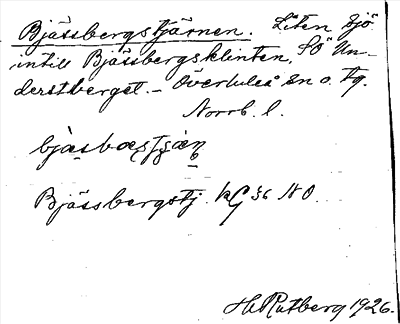 Bjässbergstjärnen. Liten sjö
intill Bjässbergsklinten, SO Un-
derstberget. – Överluleå sn o. tg.
Norrb. l.
Bjässbergstj. kG 36 NO.
H Rutberg 1926.